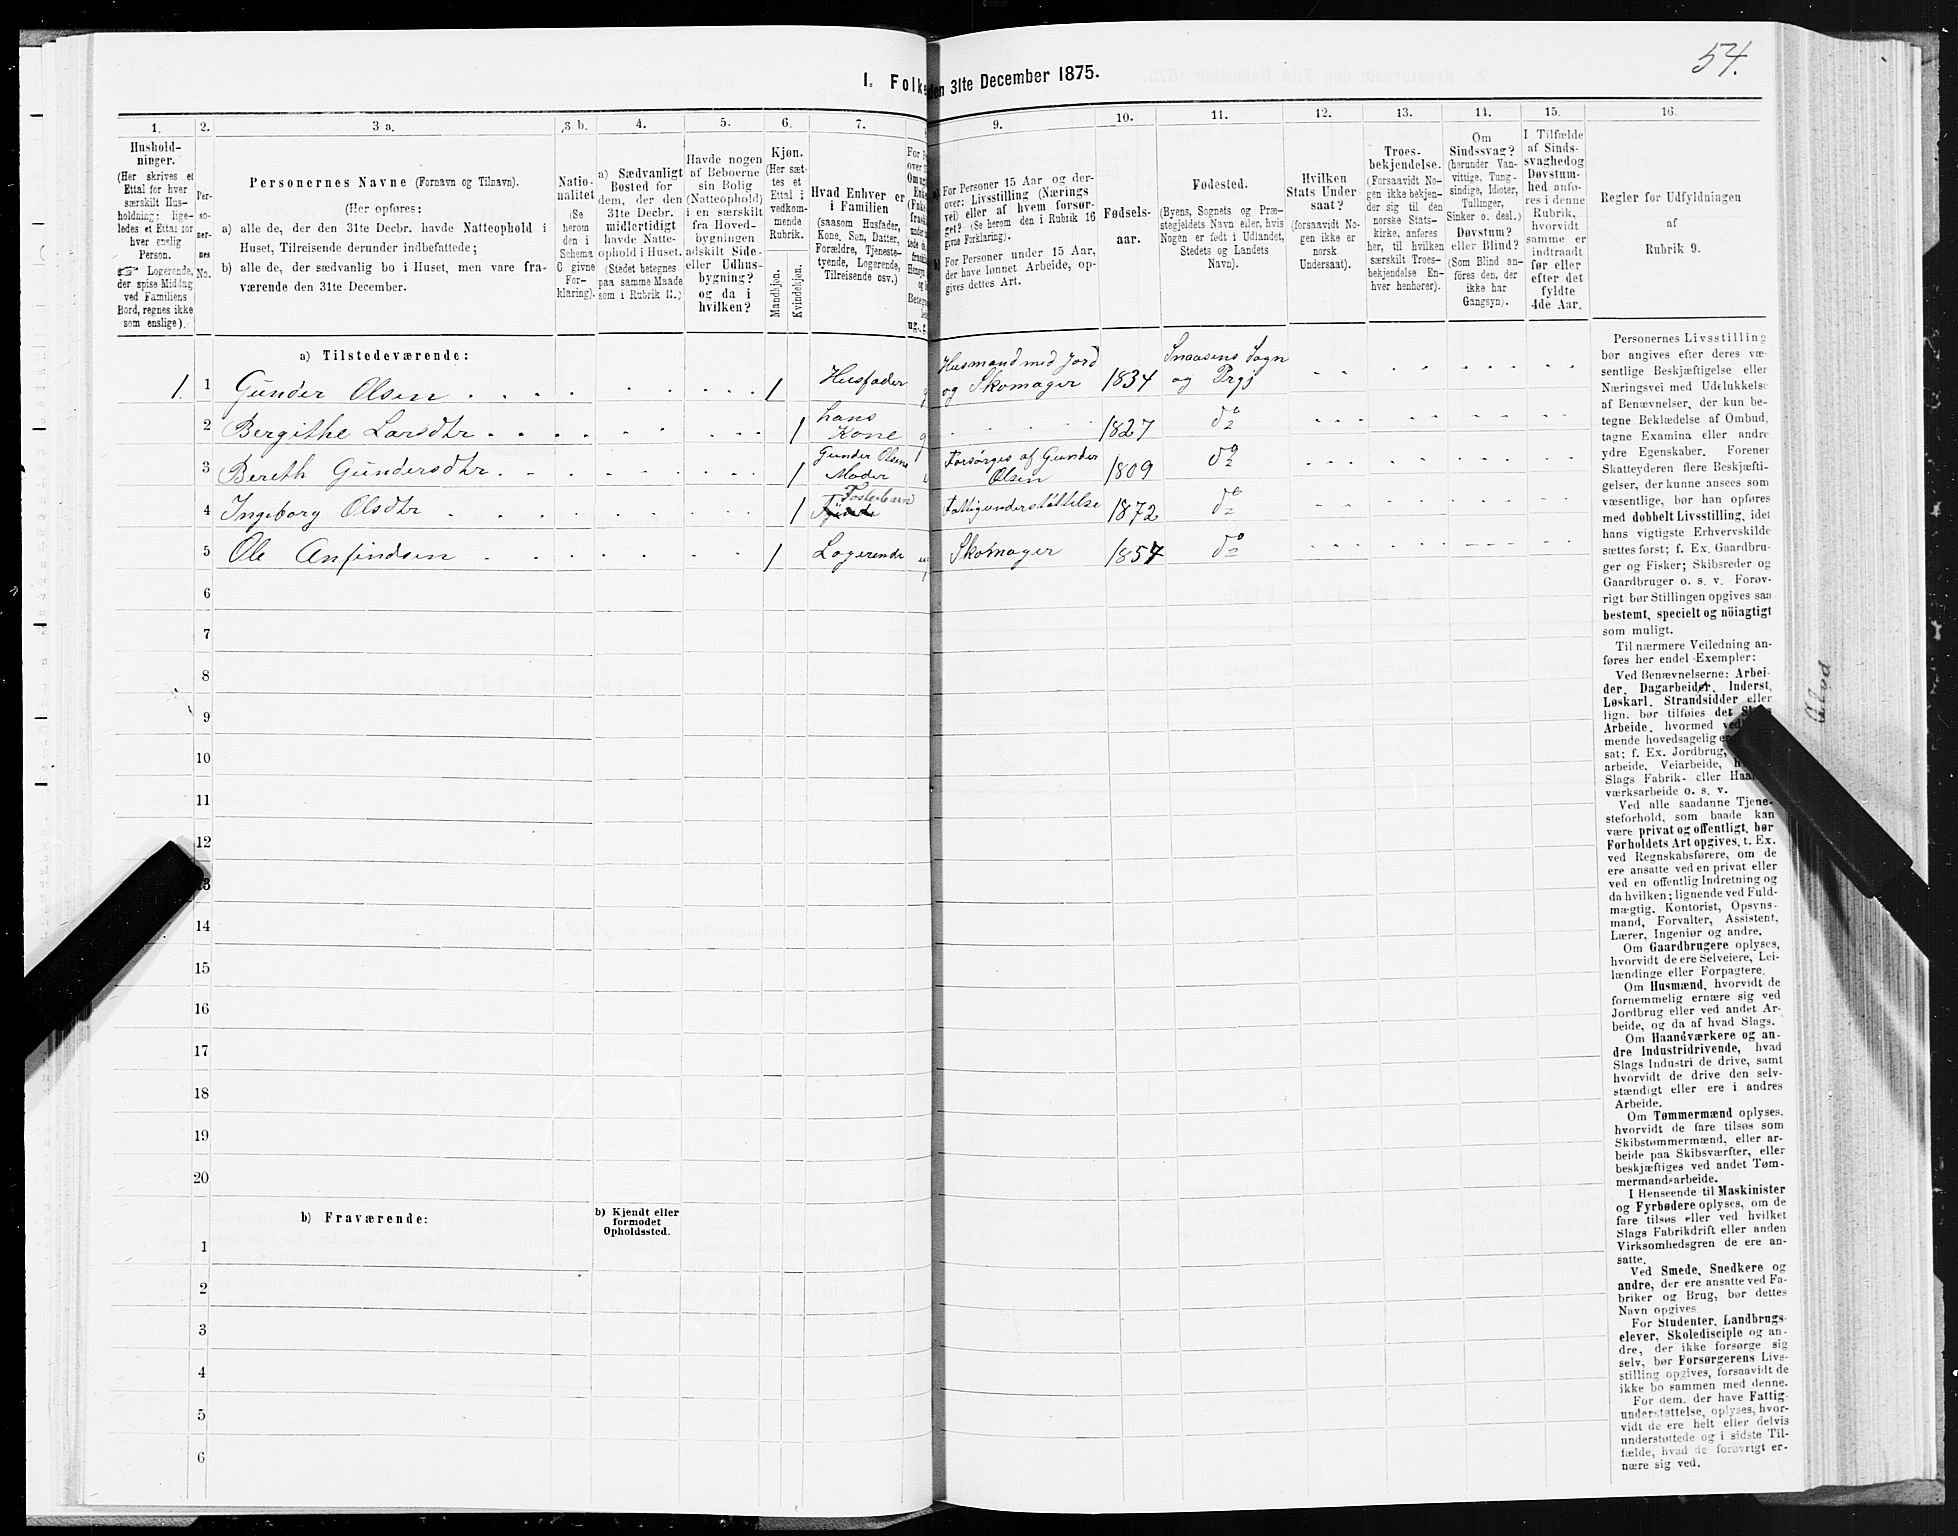 54.
I. Folke
den 31te December 1875.
1.
2.
3 a.
3 b.
4.
5.
6.
7.
9.
10.
11.
12.
13.
14.
15.
16.
Hushold-
ninger.
(Her skrives et
Ettal for hver
særskilt Hus-
holdning; lige-
ledes et Ettal for
hver enelig
Person.
☞ Logerende,
der spise Middag
ved Familiens
Bord, regnes ikke
som enslige).
Per-
so-
ner-
nes
No.
Personernes Navne (Fornavn og Tilnavn).
(Her opføres:
a) alle de, der den 31te Decbr. havde Natteophold i
Huset, Tilreisende derunder indbefattede;
b) alle de, der sædvanlig bo i Huset, men vare fra-
værende den 31te December.
Natio-
nalitet
(Se
herom
den i
Schema
G givne
For-
klaring).
a) Sædvanligt
Bosted for
dem, der den
31te Decbr.
midlertidigt
havde Natte-
ophold i Huset.
(Stedet betegnes
paa samme Maade
som i Rubrik 11.)
Havde nogen
af Beboerne
sin Bolig
(Natteophold)
i en særskilt
fra Hoved-
bygningen
adskilt Side-
eller Udhus-
bygning?
og da i
hvilken?
Kjøn.
(Her sæt-
tes et
Ettal i
vedkom-
mende
Rubrik.
Mandkjøn.
Kvindekjøn.
Hvad Enhver er
i Familien
(saasom Husfader,
Kone, Søn, Datter,
Forældre, Tjeneste-
tyende, Logerende,
Tilreisende osv.)
ug., g.
a) For Personer 15 Aar og der-
over: Livsstilling (Nærings
vei) eller af hvem forsør-
get? (Se herom den i Rubrik 16
givne Forklaring).
b) For Personer under 15 Aar,
der have lønnet Arbeide, op-
gives dettes Art.
Fødsels-
aar.
Fødested.
(Byens, Sognets og Præ-
stegjeldets Navn eller, hvis
Nogen er født i Udlandet,
Stedets og Landets
Navn).
Hvilken
Stats Under
saat?
(foraavidt No-
gen ikke er
norsk
Undersaat).
Troes-
bekjendelse.
(Forsaavidt No-
gen ikke bekjen-
der sig til den
norske Stats-
kirke, anføres
her, til hvilken
særskilt Troes-
bekjendelse En-
hver henhører).
Om
Sindssvag?
(herunder Van-
vittige, Tung-
sindige, Idioter,
Tullinger,
Sinker o. desl.)
Døvstum?
eller Blind?
(Som Blind an-
føres den, der
ikke har
Gangsyn).
I Tilfælde
af Sinds-
svaghed og
Døvstum-
hed anfø-
res i denne
Rubrik,
hvorvidt
samme er
indtraadt
før eller
efter det
fyldte
4de Aar.
Regler for Udfyldningen
af
Rubrik 9.
a) Tilstedeværende:
1. 1 Gunder Olsen 1 Husfader g Husmand med Jord og Skomager 1834 Snaasens Sogn og Prgj
2 Bergithe Larsdtr 1 hans Kone g 1827 do
3 Bereth Gundersdtr 1 Gunder Olsens Moder Forsørges af Gunder Olsen 1809 do
4 Ingeborg Olsdtr 1 Fosterbarn Fattigunderstøttelse 1872 do
5 Ole Anfindsen 1 Logerende Skomager 1854 do
6
7
8
9
10
11
12
13
14
15
16
17
18
19
20
b) Fraværende:
b) Kjendt eller
formodet
Opholdssted.
1
2
3
4
5
6
Personernes Livsstilling
bør angives efter deres væ-
sentlige Beskjæftigelse eller
Næringsvei med Udelukkelse
af Benævnelser, der kun be-
tegne Beklædelse af Ombud,
tagne Examina eller andre
ydre Egenskaber. Forener
Skatteyderen flere Beskjæfti-
gelser, der kunne ansees som
væsentlige, bør han opføres
med dobbelt Livsstilling, idet
hans vigtigste Erhvervskilde
sættes først; f. Ex. Gaardbru-
ger og Fisker; Skibsreder og
Gaardbruger o. s. v. Forøv-
rigt bør Stillingen opgives saa
bestemt, specielt og nöiagtigt
som muligt.
Til nærmere Veiledning an-
føres her endel Exempler:
Ved Benævnelserne: Arbei-
der, Dagarbeider, Inderst,
Løskarl, Strandsidder eller
lign. bør tilføies det Slags
Arbeide, hvormed ved
mende hovedsagelig e
sat; f. Ex. Jordbrug,
arbeide, Veiarbeide,
Slags Fabrik- eller Haa
værksarbeide o. s. v.
Ved alle saadanne Tjene-
steforhold, som baade kan
være privat og offentligt, bør
Forholdets Art opgives, f. Ex.
ved Regnskabsførere, om de
ere ansatte ved en privat eller
ved en offentlig Indretning og
da hvilken; lignende ved Fuld-
mægtig, Kontorist, Opsyns-
mand, Forvalter, Assistent,
Lærer, Ingeniør og andre.
Om Gaardbrugere oplyses,
hvorvidt de ere Selveiere, Lei-
lændinge eller Forpagtere.
Om Husmænd, hvorvidt de
fornemmelig ernære sig ved
Jordbrug eller ved andet Ar-
beide, og da af hvad Slags.
Om Haandværkere og an-
dre Industridrivende, hvad
Slags Industri de drive, samt
hvorvidt de drive den selv-
stændigt eller ere i andres
Arbeide.
Om Tømmermænd oplyses,
hvorvidt de fare tilsøs som
Skibstømmermænd, eller ar-
beide paa Skibsværfter, eller
beskjæftiges ved andet Tøm-
mermandsarbeide.
I Henseende til Maskinister
og Fyrbødere oplyses, om de
fare tilsøs eller ved hvilket
Slags Fabrikdrift eller anden
Virksomhedsgren de ere an-
satte.
Ved Smede, Snedkere og
andre, der ere ansatte ved Fa-
briker og Brug, bør dettes
Navn opgives
For Studenter, Landbrugs-
elever, Skoledisciple og an-
dre, der ikke forsørge sig
selv, bør Forsørgerens Livs-
stilling opgives, forsaavidt de
ikke bo sammen med denne.
For dem, der have Fattig-
understøttelse, oplyses, hvor-
vidt de ere helt eller delvis
understøttede og i sidste Til-
fælde, hvad de forøvrigt er-
nære sig ved.